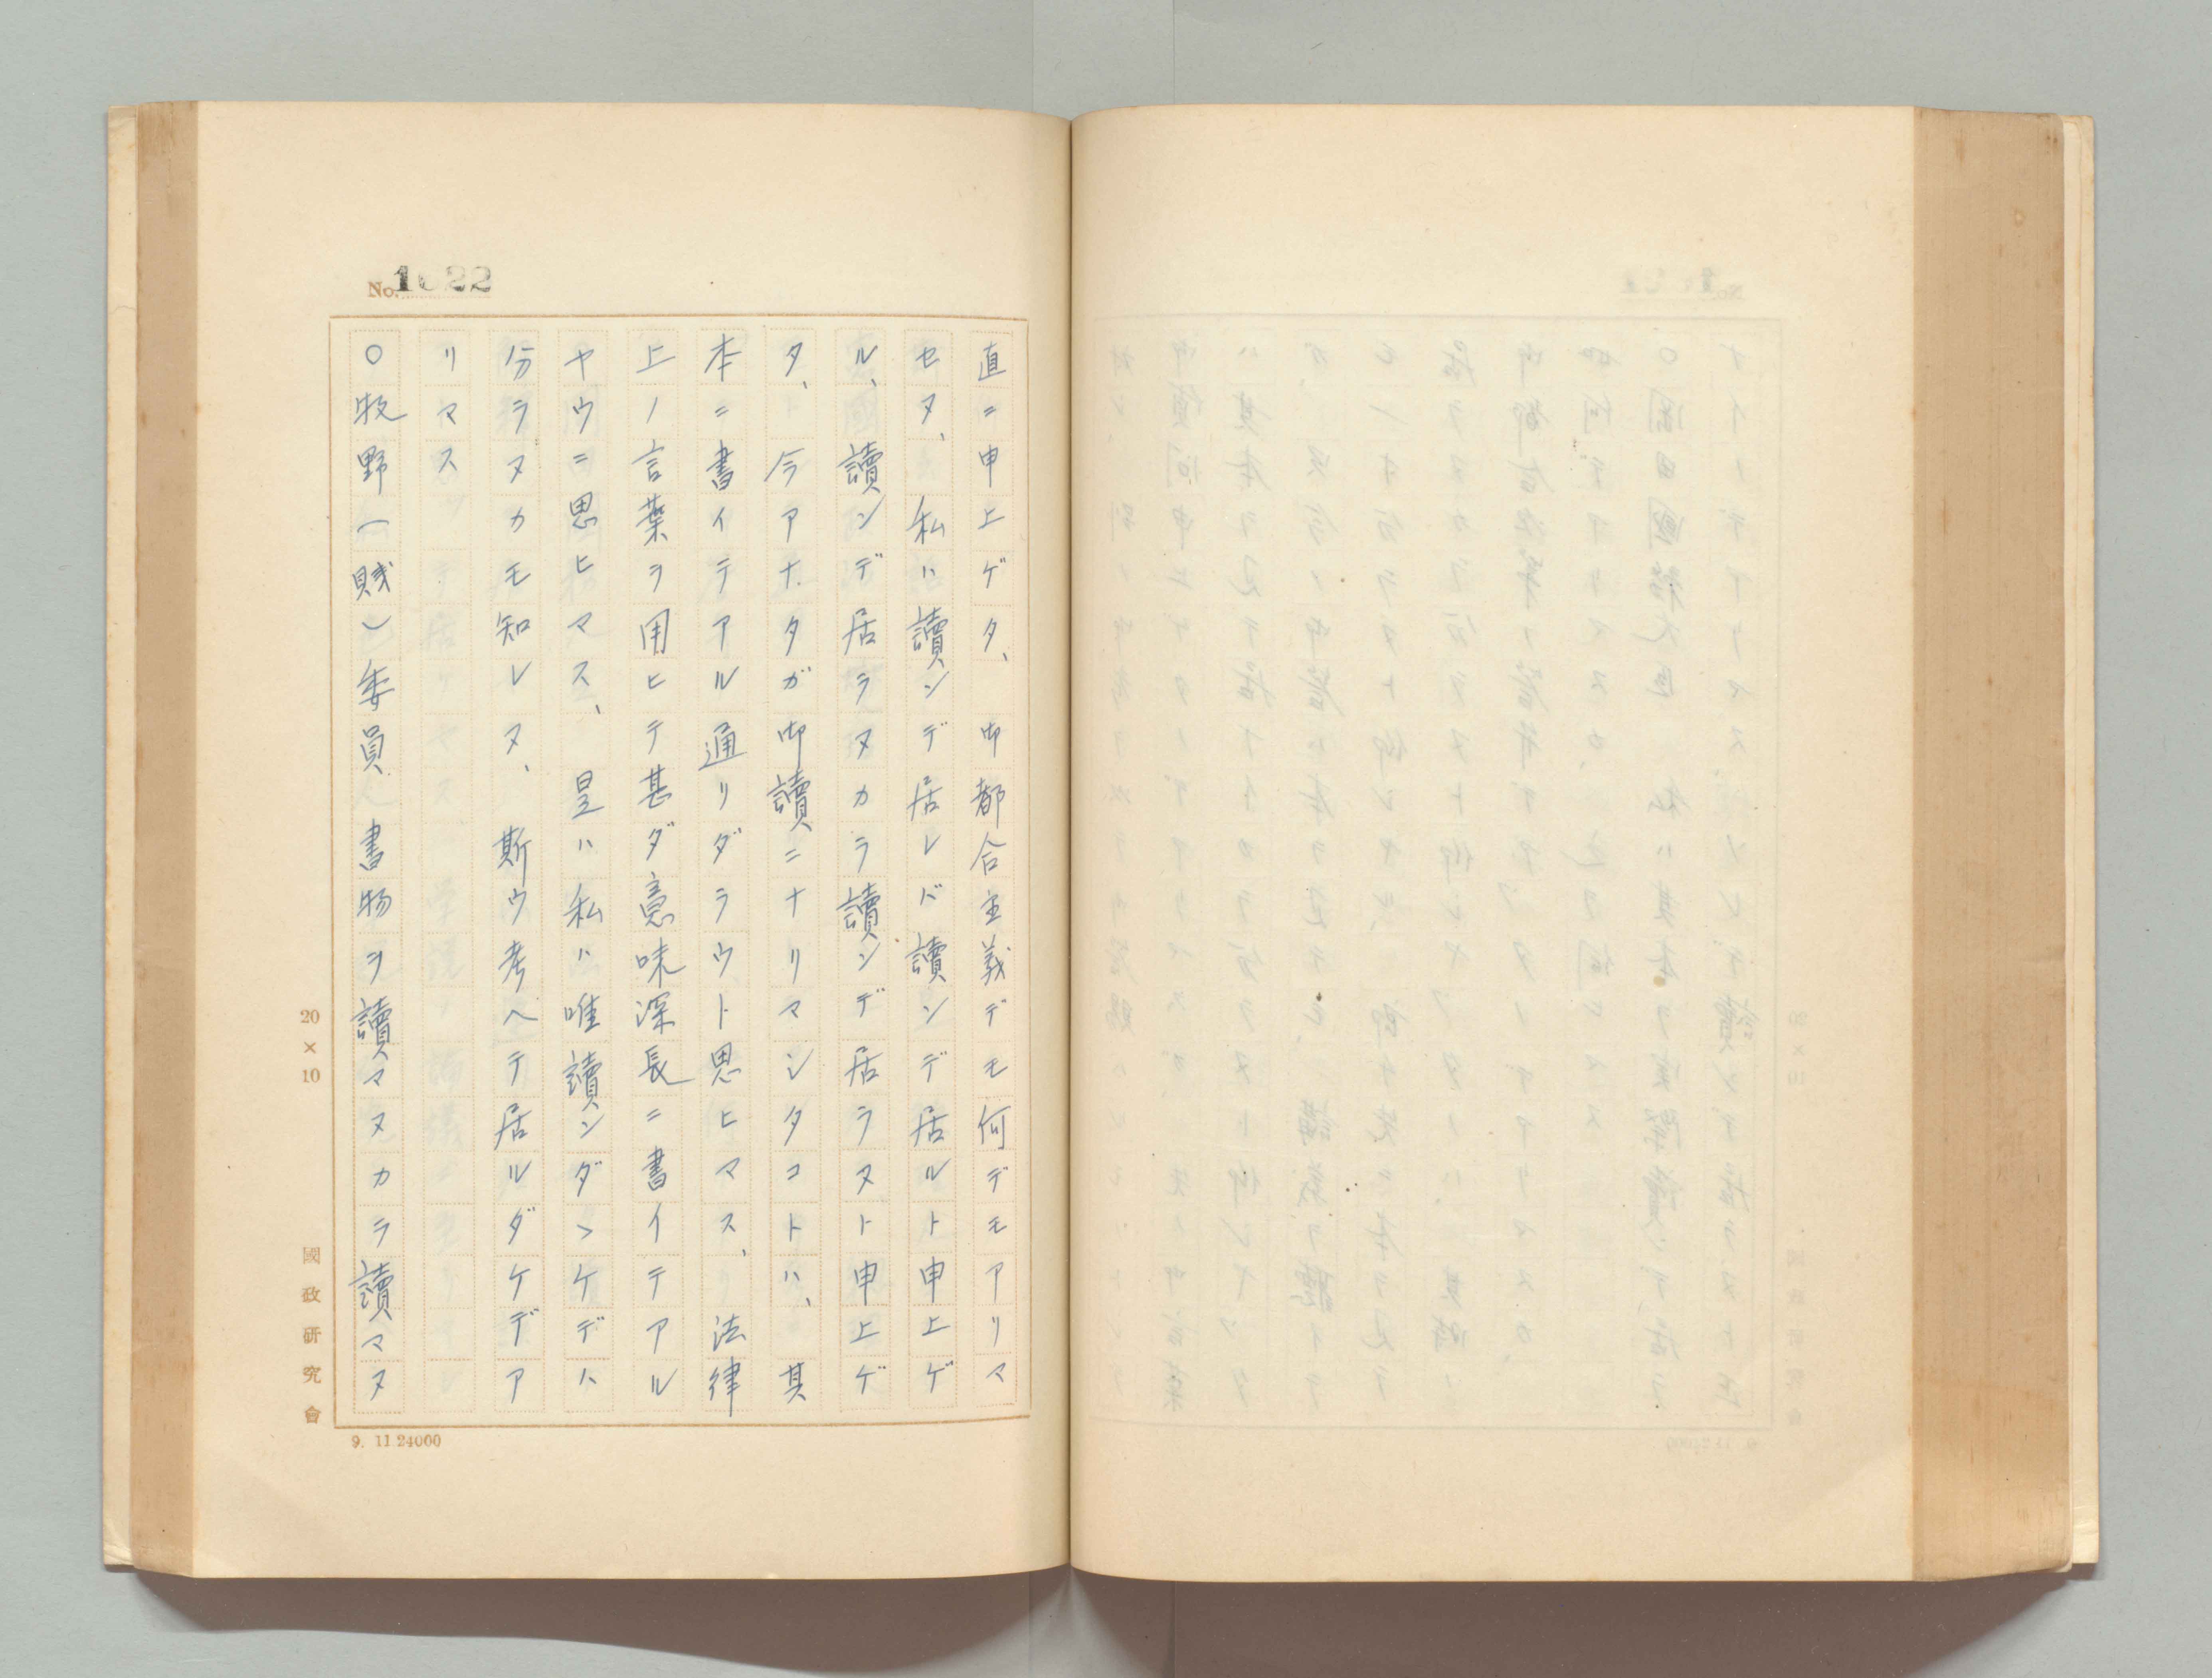 No. 1022
直ニ申上ゲタ、御都合主義デモ何デモアリマ
セヌ、私ハ讀ンデ居レバ讀ンデ居ルト申上ゲ
ル、讀ンデ居ラヌカラ讀ンデ居ラヌト申上ゲ
タ、今アナタガ御讀ニナリマシタコトハ、其
本ニ書イテアル通リダラウト思ヒマス、法律
上ノ言葉ヲ用ヒテ甚ダ意味深長ニ書イテアル
ヤウニ思ヒマス、是ハ私ハ唯讀ンダヾケデハ
分ラヌカモ知レヌ、斯ウ考ヘテ居ルダケデア
リマス
○牧野(賤)委員 書物ヲ讀マヌカラ讀マヌ
20×10
國政研究會
9. 11 24000